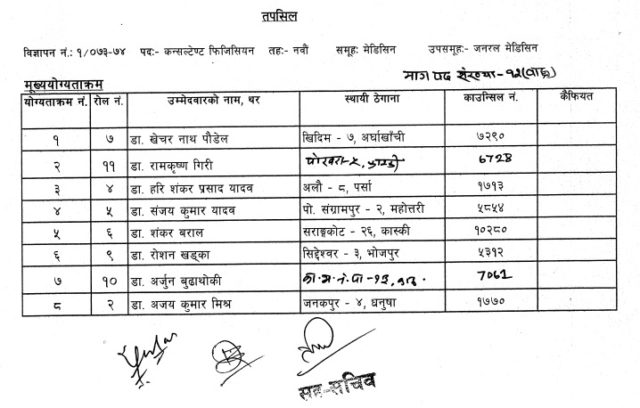 तपसिल
विज्ञापन नं.: १/०७३-७४ पदः- कन्सल्टेण्ट फिजिसियन तहः- नवौ समूहः मेडिसिन उपसमूहः- जनरल मेडिसिन
माग पद संख्या-१२(बाह्र)
मूख्ययोग्यताक्रम
योग्यताक्रम नं. रोल नं. उम्मेदवारको नाम, थर स्थायी ठेगाना काउन्सिल नं. कैफियत
१ ७ डा. खेचर नाथ पौडेल खिदिम - ७, अर्घाखाँची ७२९०
२ ११ डा. रामकृष्ण गिरी पोखरा-५, कास्की 6728
३ ४ डा. हरि शंकर प्रसाद यादव अलौ - ८, पर्सा १७१३
४ ५ डा. संजय कुमार यादव पो. संग्रामपुर - २, महोत्तरी ५८५४
५ ६ डा. शंकर बराल सराङ्कोट - २६, कास्की १०२८०
६ ९ डा. रोशन खड्का सिद्देश्वर - ३, भोजपुर ५३१२
७ १० डा. अर्जुन बुढाथोकी का.म.न.पा-१३, 7061
८ २ डा. अजय कुमार मिश्र जनकपुर - ४, धनुषा १७७०
सह-सचिव